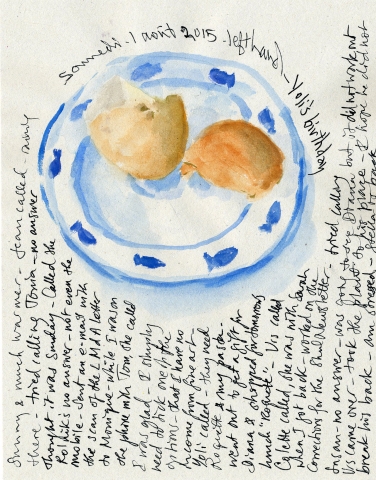 Samedi. 1 août 2015. left hand
(anything silly)
Sunny & much warmer - Jean called - only
there - tried calling Tonia - no answer
thought it was Sunday - Called the
no answer - not even the
mobile - Sent an e-mail with
the scan of the LMDA letter
to Monique - while I was on
the phone with Tom she called
I was glad - I simply
need to tick one
of time - that I have no
income from fine art
called - then need
Roquette & my
went out to get a gift for
Diana & stopped for
lunch "Roquette" - Vis called
Colette called, she was with Sarah
when I got back - worked on the
Corrections for the Newsletter - tried calling
Susan - no answer - was going to see Diana but it did not work out
Vis came over - took the plant to his place - I hope he did not
break his back - am stressed -